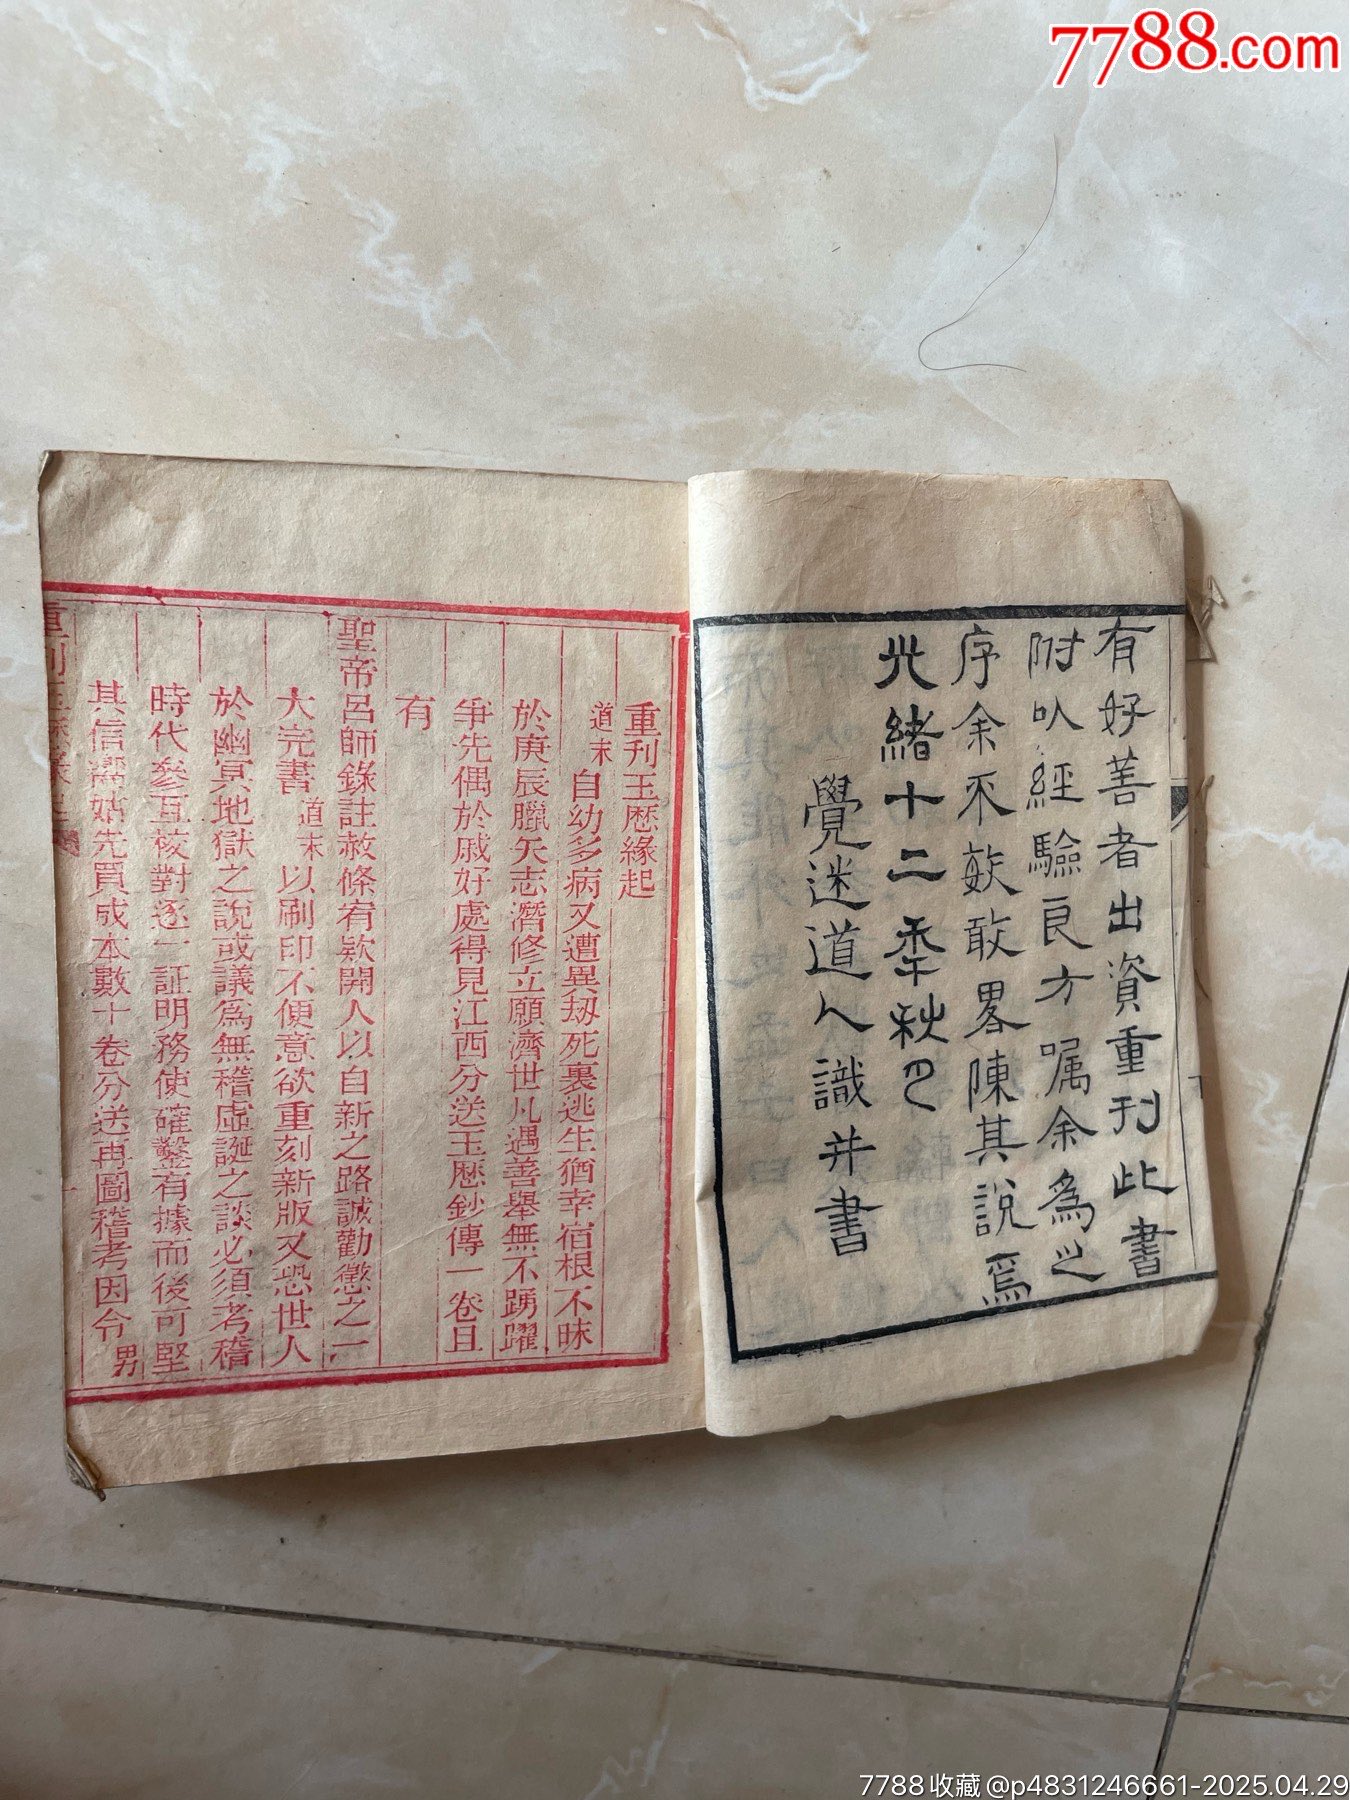 7788.com
有好善者出資重刊此書
附以經驗良方嘱余為之
序余不敏敢畧陳其說焉
光緒十二季秋巳
覺迷道人識并書
重刊玉歷緣起
道末自幼多病又遭異刼死裏逃生猶幸宿根不昧
於庚辰臘矢志潛修立願濟世凡遇善舉無不踴躍
爭先偶於戚好處得見江西分送玉歷鈔傳一卷且
有
聖帝呂師錄註赦條宥欵開人以自新之路誠勸懲之一
大完書道末以刷印不便意欲重刻新版又恐世人
於幽冥地獄之說或議爲無稽虛誕之談必須考稽
時代參互核對逐一証明務使確鑿有據而後可堅
其信 姑先買成本數十卷分送再圖稽考因令男
重刊玉歷
7788收藏@p4831246661-2025.04.29